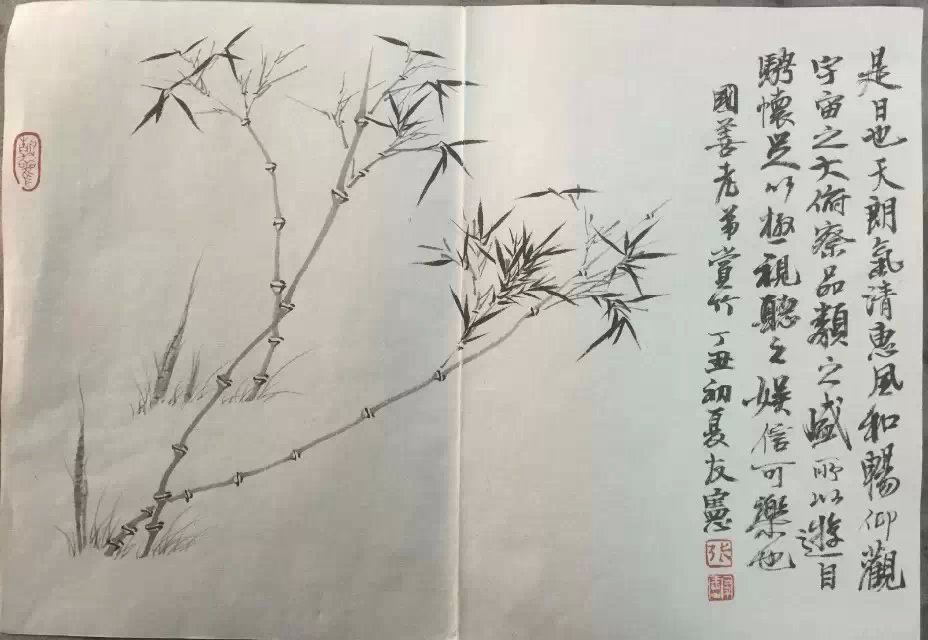 是日也天朗氣清惠風和暢仰觀
宇宙之大俯察品類之盛所以遊目
騁懷足以極視聽之娛信可樂也
國善老弟賞竹丁丑初夏友憲
张